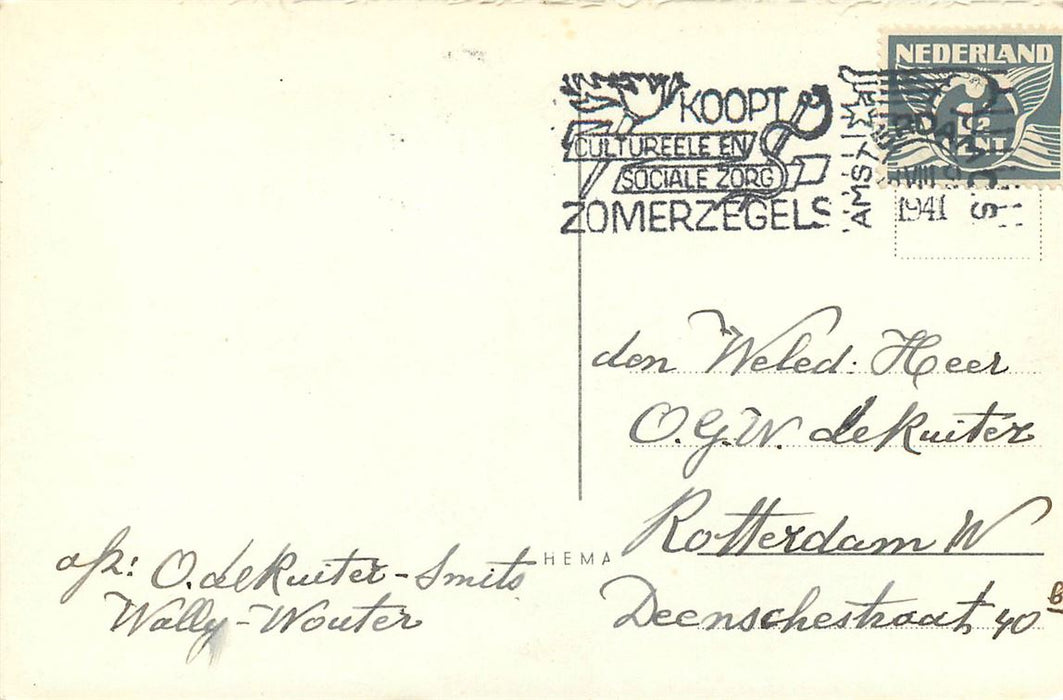 NEDERLAND
KOOPT
CULTUREELE EN
SOCIALE ZORG
ZOMERZEGELS
AMST
VIII
1941
CENT
den Weled. Heer
O.G.W. de Kuiter
Rotterdam W
Deenschestraat 40 B
HEMA
afz: O. de Kuiter-Smits
Wally-Wouter